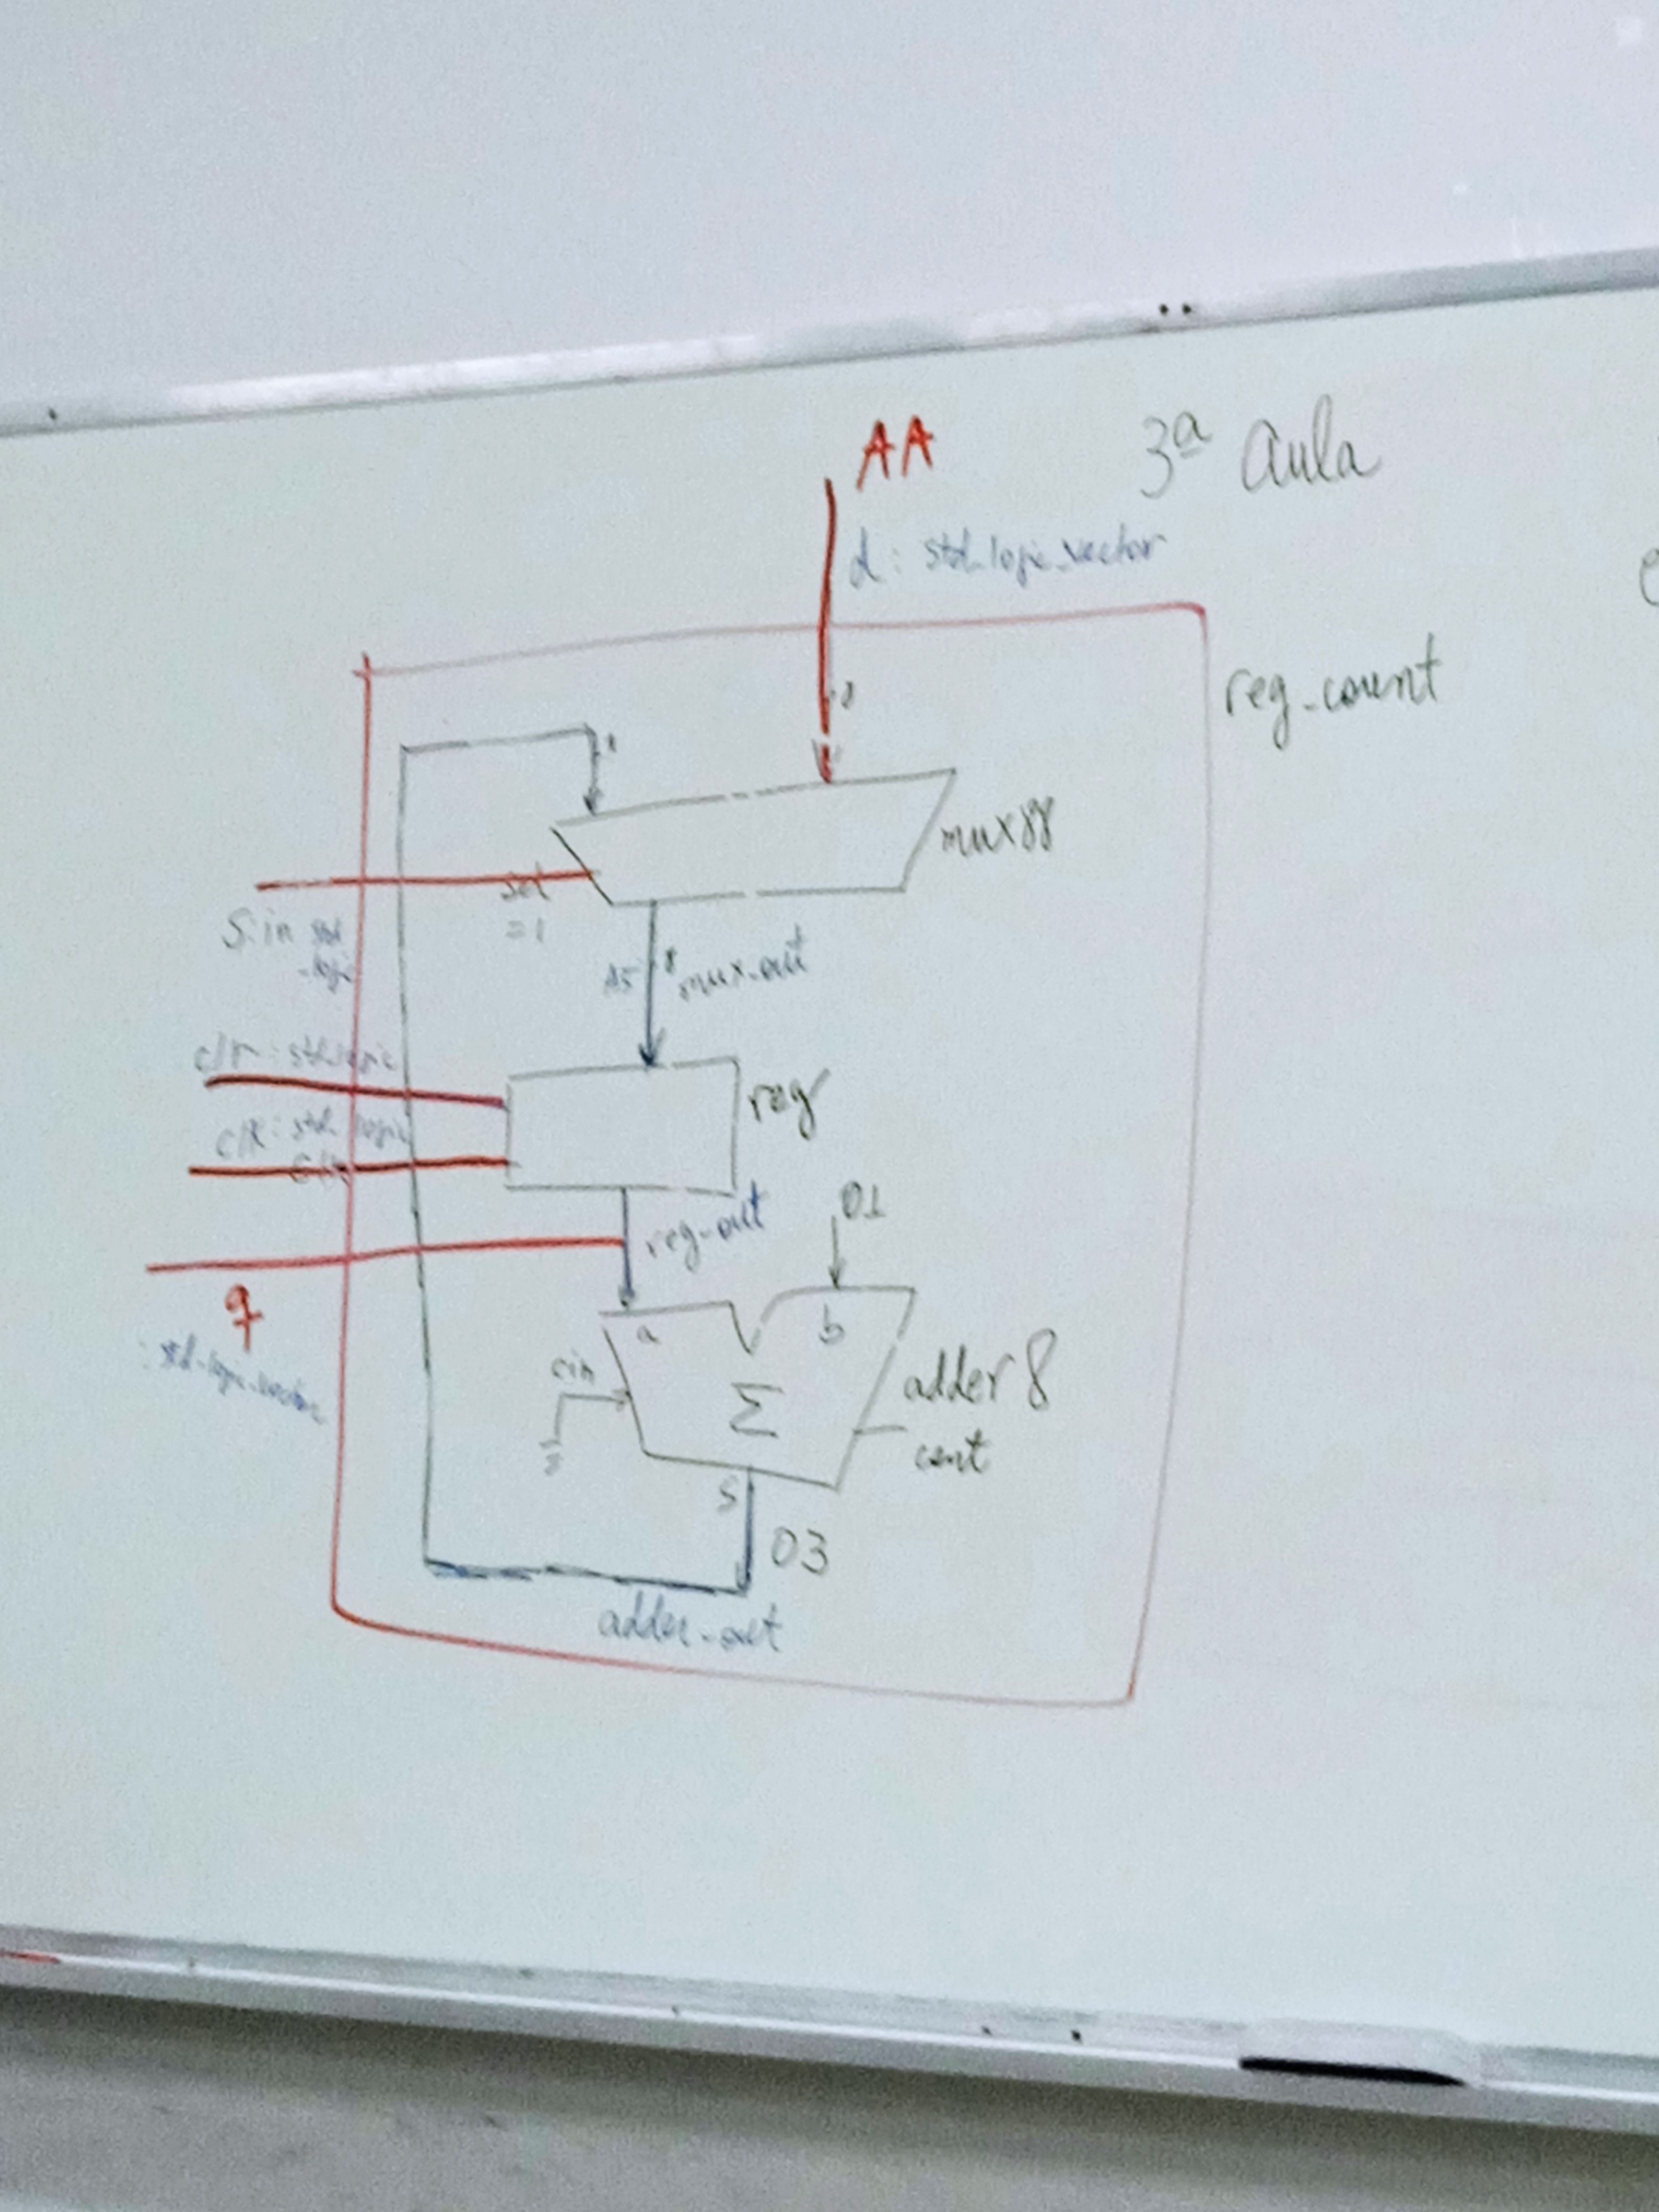 AA
3ª Aula
d: std_logic_vector
reg_count
8
mux88
sel
=1
S: in std
_logic
8
mux_out
clr: std_logic
reg
clk: std_logic
01
reg_out
q
: std_logic_vector
a
b
cin
adder 8
Σ
cout
S
03
adder_out